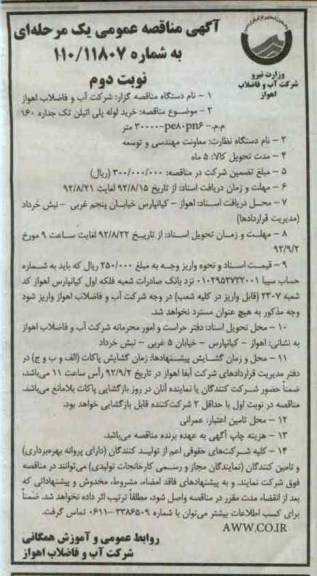 آگهی مناقصه عمومی یک مرحله‌ای
به شماره ۱۱۰/۱۱۸۰۷
نوبت دوم
وزارت نیرو
شرکت آب و فاضلاب
اهواز
۱ - نام دستگاه مناقصه گزار: شرکت آب و فاضلاب اهواز
۲ - موضوع مناقصه: خرید لوله پلی اتیلن تک جداره ۱۶۰
م.م.- pe۸۰pn۶-۳۰۰۰۰ متر
۳ - نام دستگاه نظارت: معاونت مهندسی و توسعه
۴ - مدت تحویل کالا: ۵ ماه
۵ - مبلغ تضمین شرکت در مناقصه: ۳۰۰/۰۰۰/۰۰۰ (ریال)
۶ - مهلت و زمان دریافت اسناد: از تاریخ ۹۲/۸/۱۵ لغایت ۹۲/۸/۲۱
۷ - محل دریافت اسناد: اهواز - کیانپارس خیابان پنجم غربی - نبش خرداد
(مدیریت قراردادها)
۸ - مهلت و زمان تحویل اسناد: از تاریخ ۹۲/۸/۲۲ لغایت ساعت ۹ مورخ
۹۲/۹/۲
۹ - قیمت اسناد و نحوه واریز وجه به مبلغ ۲۵۰/۰۰۰ ریال که باید به شماره
حساب سیبا ۰۱۰۲۹۵۲۷۳۲۰۰۱ نزد بانک صادرات شعبه فلکه اول کیانپارس اهواز کد
شعبه ۲۳۰۷ (قابل واریز در کلیه شعب) در وجه شرکت آب و فاضلاب اهواز واریز شود
وجه مذکور به هیچ عنوان مسترد نخواهد شد.
۱۰ - محل تحویل اسناد: دفتر حراست و امور محرمانه شرکت آب و فاضلاب اهواز
به نشانی: اهواز - کیانپارس - خیابان ۵ غربی - نبش خرداد
۱۱ - محل و زمان گشایش پیشنهادها: زمان گشایش پاکات (الف و ب و ج) در
دفتر مدیریت قراردادهای شرکت آبفا اهواز در تاریخ ۹۲/۹/۲ رأس ساعت ۱۱ می‌باشد،
ضمناً حضور شرکت کنندگان یا نماینده آنان در روز بازگشایی پاکات بلامانع می‌باشد.
مناقصه در نوبت اول با حداقل ۲ شرکت‌کننده قابل بازگشایی خواهد بود.
۱۲ - محل تامین اعتبار: عمرانی
۱۳ - هزینه چاپ آگهی به عهده برنده مناقصه می‌باشد.
۱۴ - کلیه شرکت‌های حقوقی اعم از تولید کنندگان (دارای پروانه بهره‌برداری)
و تامین کنندگان (نمایندگان مجاز و رسمی کارخانجات تولیدی) می‌توانند در مناقصه
فوق شرکت نمایند. و به پیشنهادهای فاقد امضاء، مشروط، مخدوش و پیشنهاداتی که
بعد از انقضاء مدت مقرر در مناقصه واصل شود، مطلقاً ترتیب اثر داده نخواهد شد. ضمناً
برای کسب اطلاعات بیشتر می‌توان با شماره ۳۳۸۶۵۰۹-۰۶۱۱ تماس گرفت.
AWW.CO.IR
روابط عمومی و آموزش همگانی
شرکت آب و فاضلاب اهواز